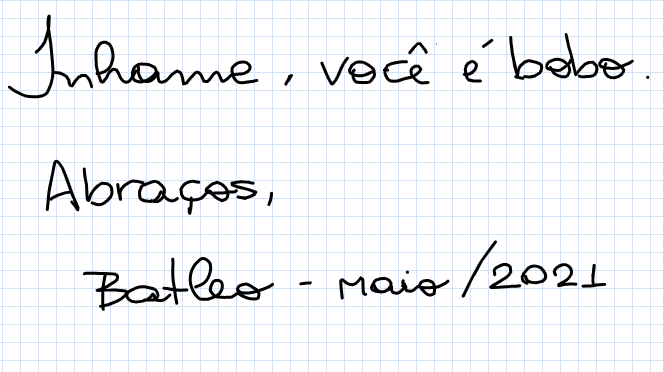 Inhame, você é bobo.
Abraços,
Batleo - maio/2021